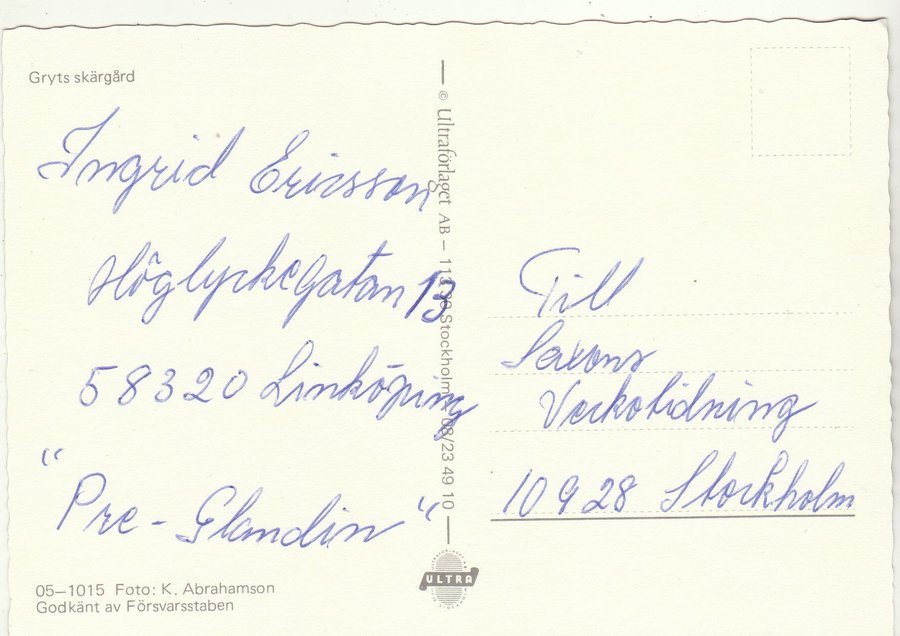 Gryts skärgård
Ingrid Ericsson
Höglyckegatan 13
58320 Linköping
"Pre-Glandin"
05–1015 Foto: K. Abrahamson
Godkänt av Försvarsstaben
© Ultraförlaget AB – 113 Stockholm 08/23 49 10
ULTRA
Till
Saxons
Veckotidning
10928 Stockholm